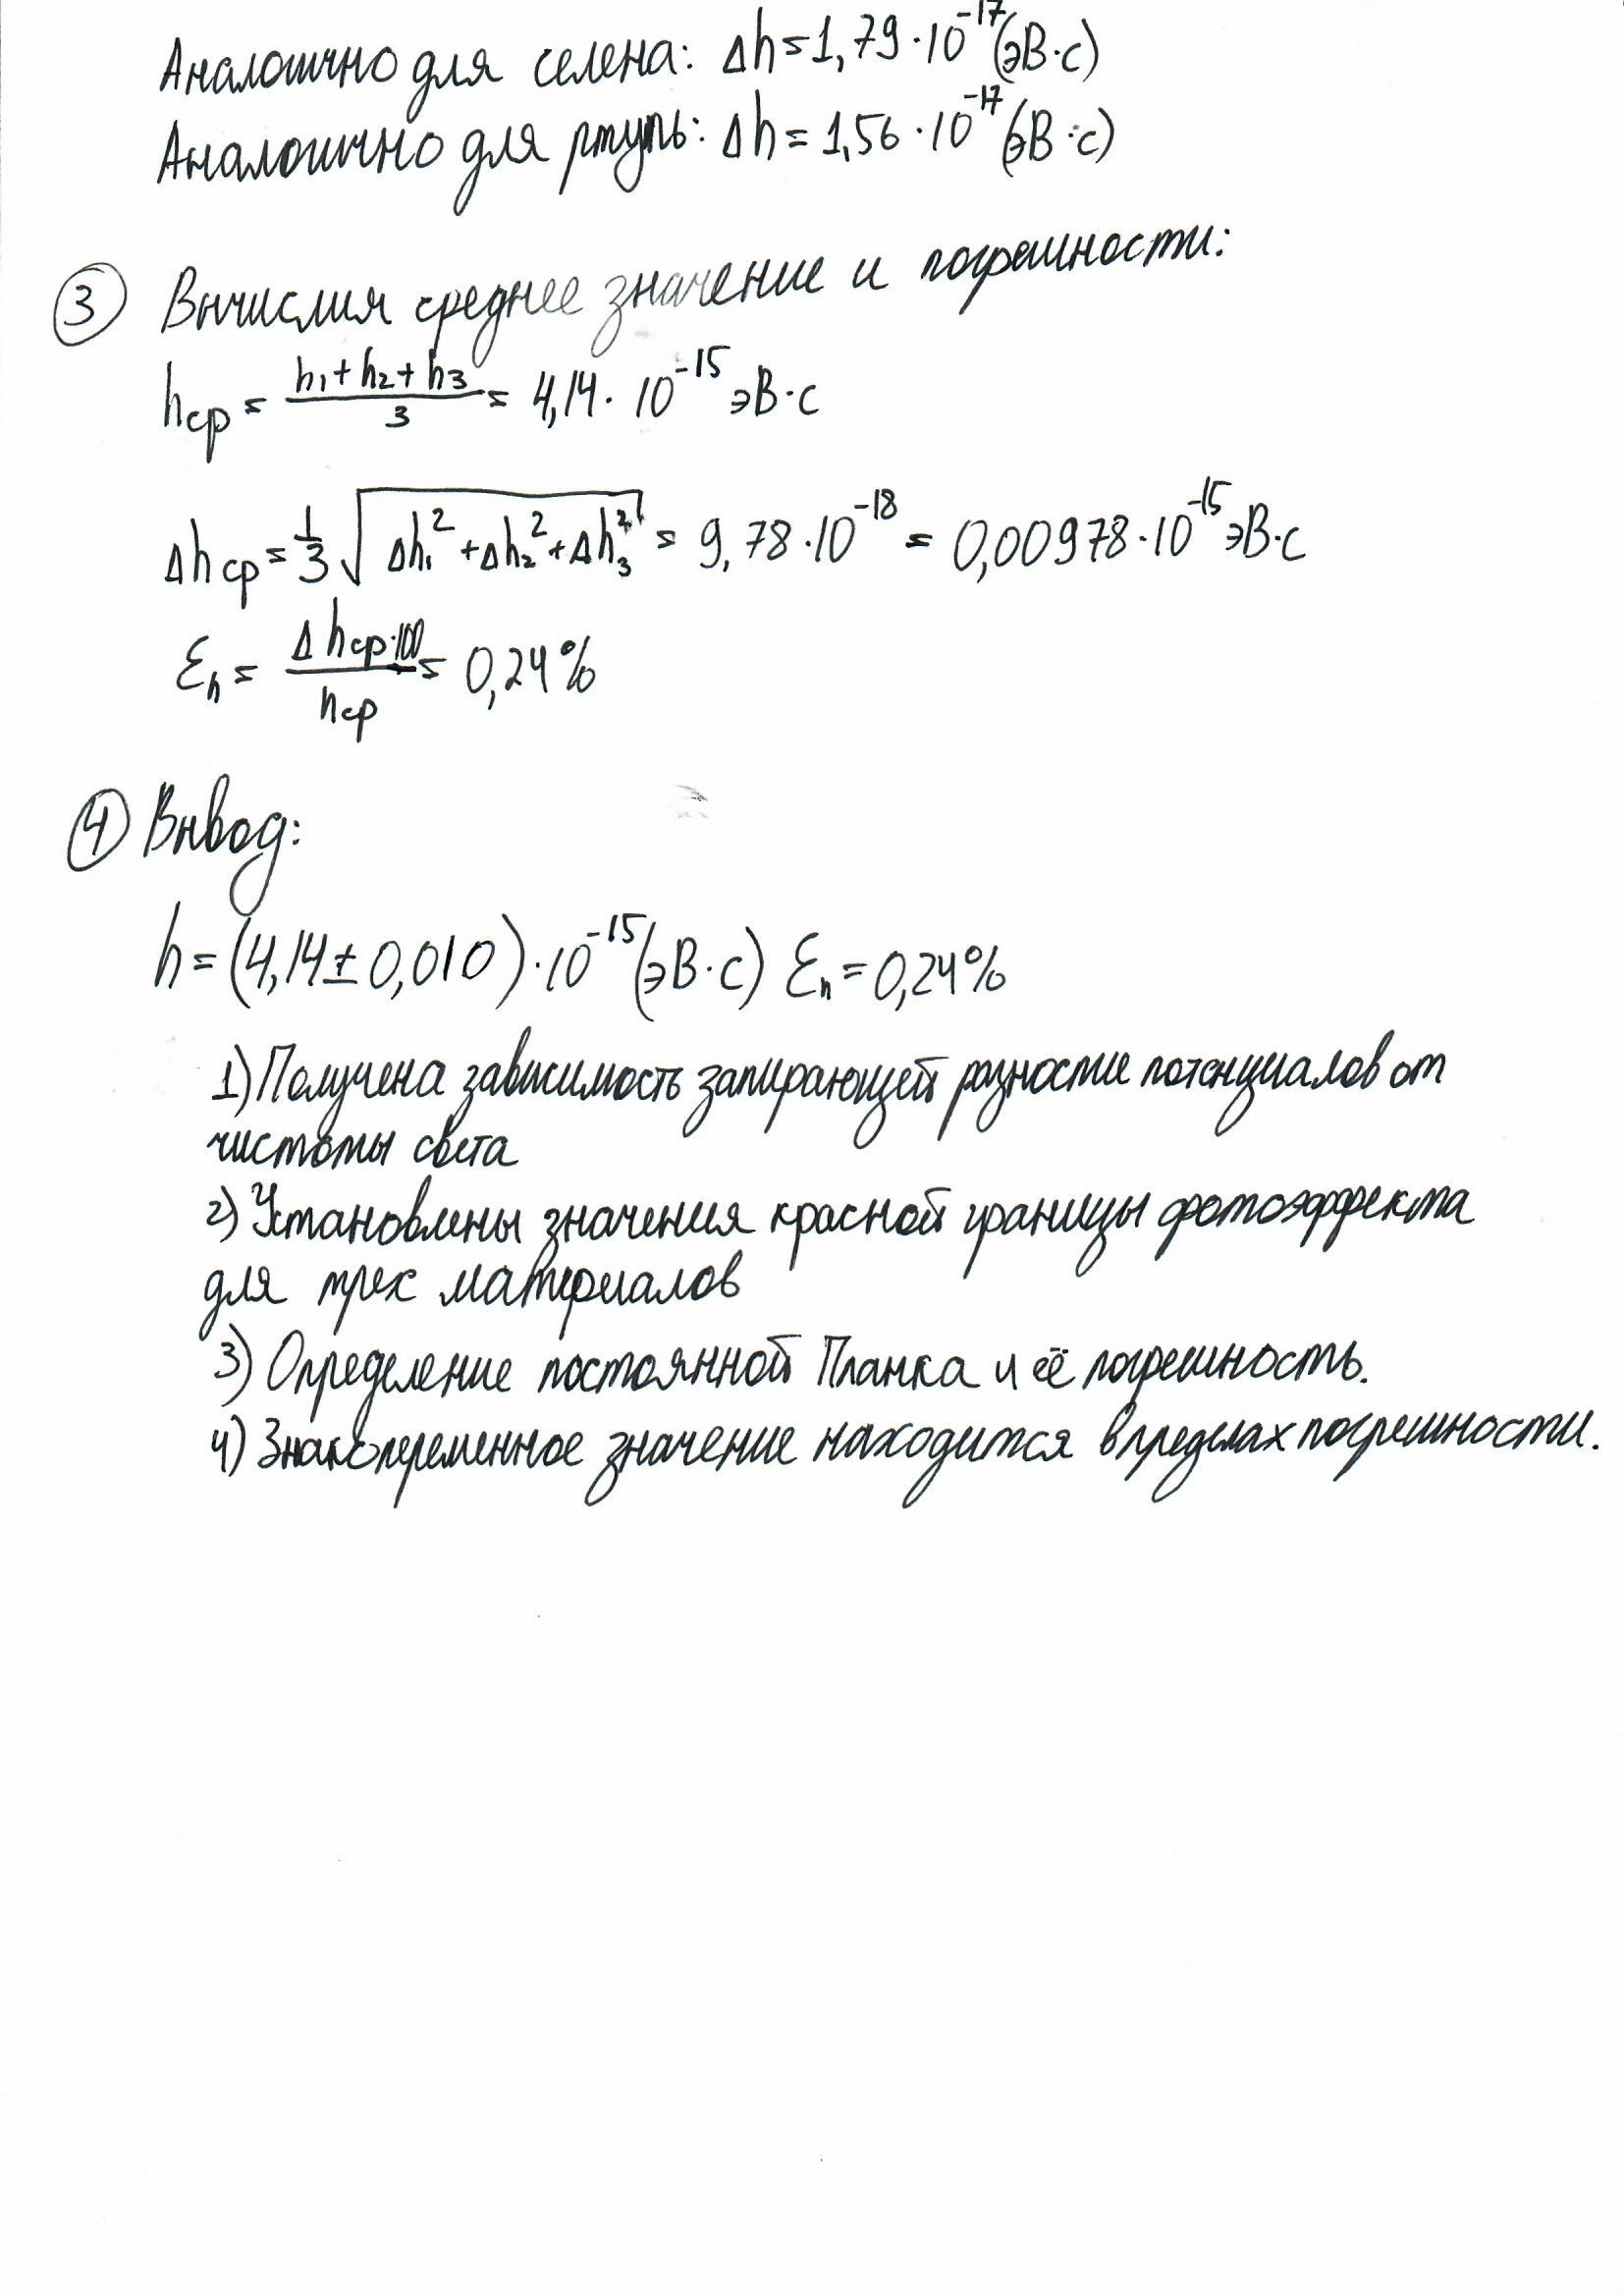 Аналогично для селена: Δh = 1,79·10⁻¹⁷(эВ·с)
Аналогично для ртуть: Δh = 1,56·10⁻¹⁷(эВ·с)
③ Вычислим среднее значение и погрешности:
hср = (h₁+h₂+h₃)/3 = 4,14·10⁻¹⁵ эВ·с
Δhср = 1/3 √(Δh₁²+Δh₂²+Δh₃²) = 9,78·10⁻¹⁸ = 0,00978·10⁻¹⁵ эВ·с
Ɛh = Δhср·100/hср = 0,24%
④ Вывод:
h = (4,14 ± 0,010)·10⁻¹⁵(эВ·с) Ɛh = 0,24%
1) Получена зависимость запирающей разности потенциалов от
чистоты света
2) Установлены значения красной границы фотоэффекта
для трех материалов
3) Определение постоянной Планка и её погрешность.
4) Знакопеременное значение находится в пределах погрешности.